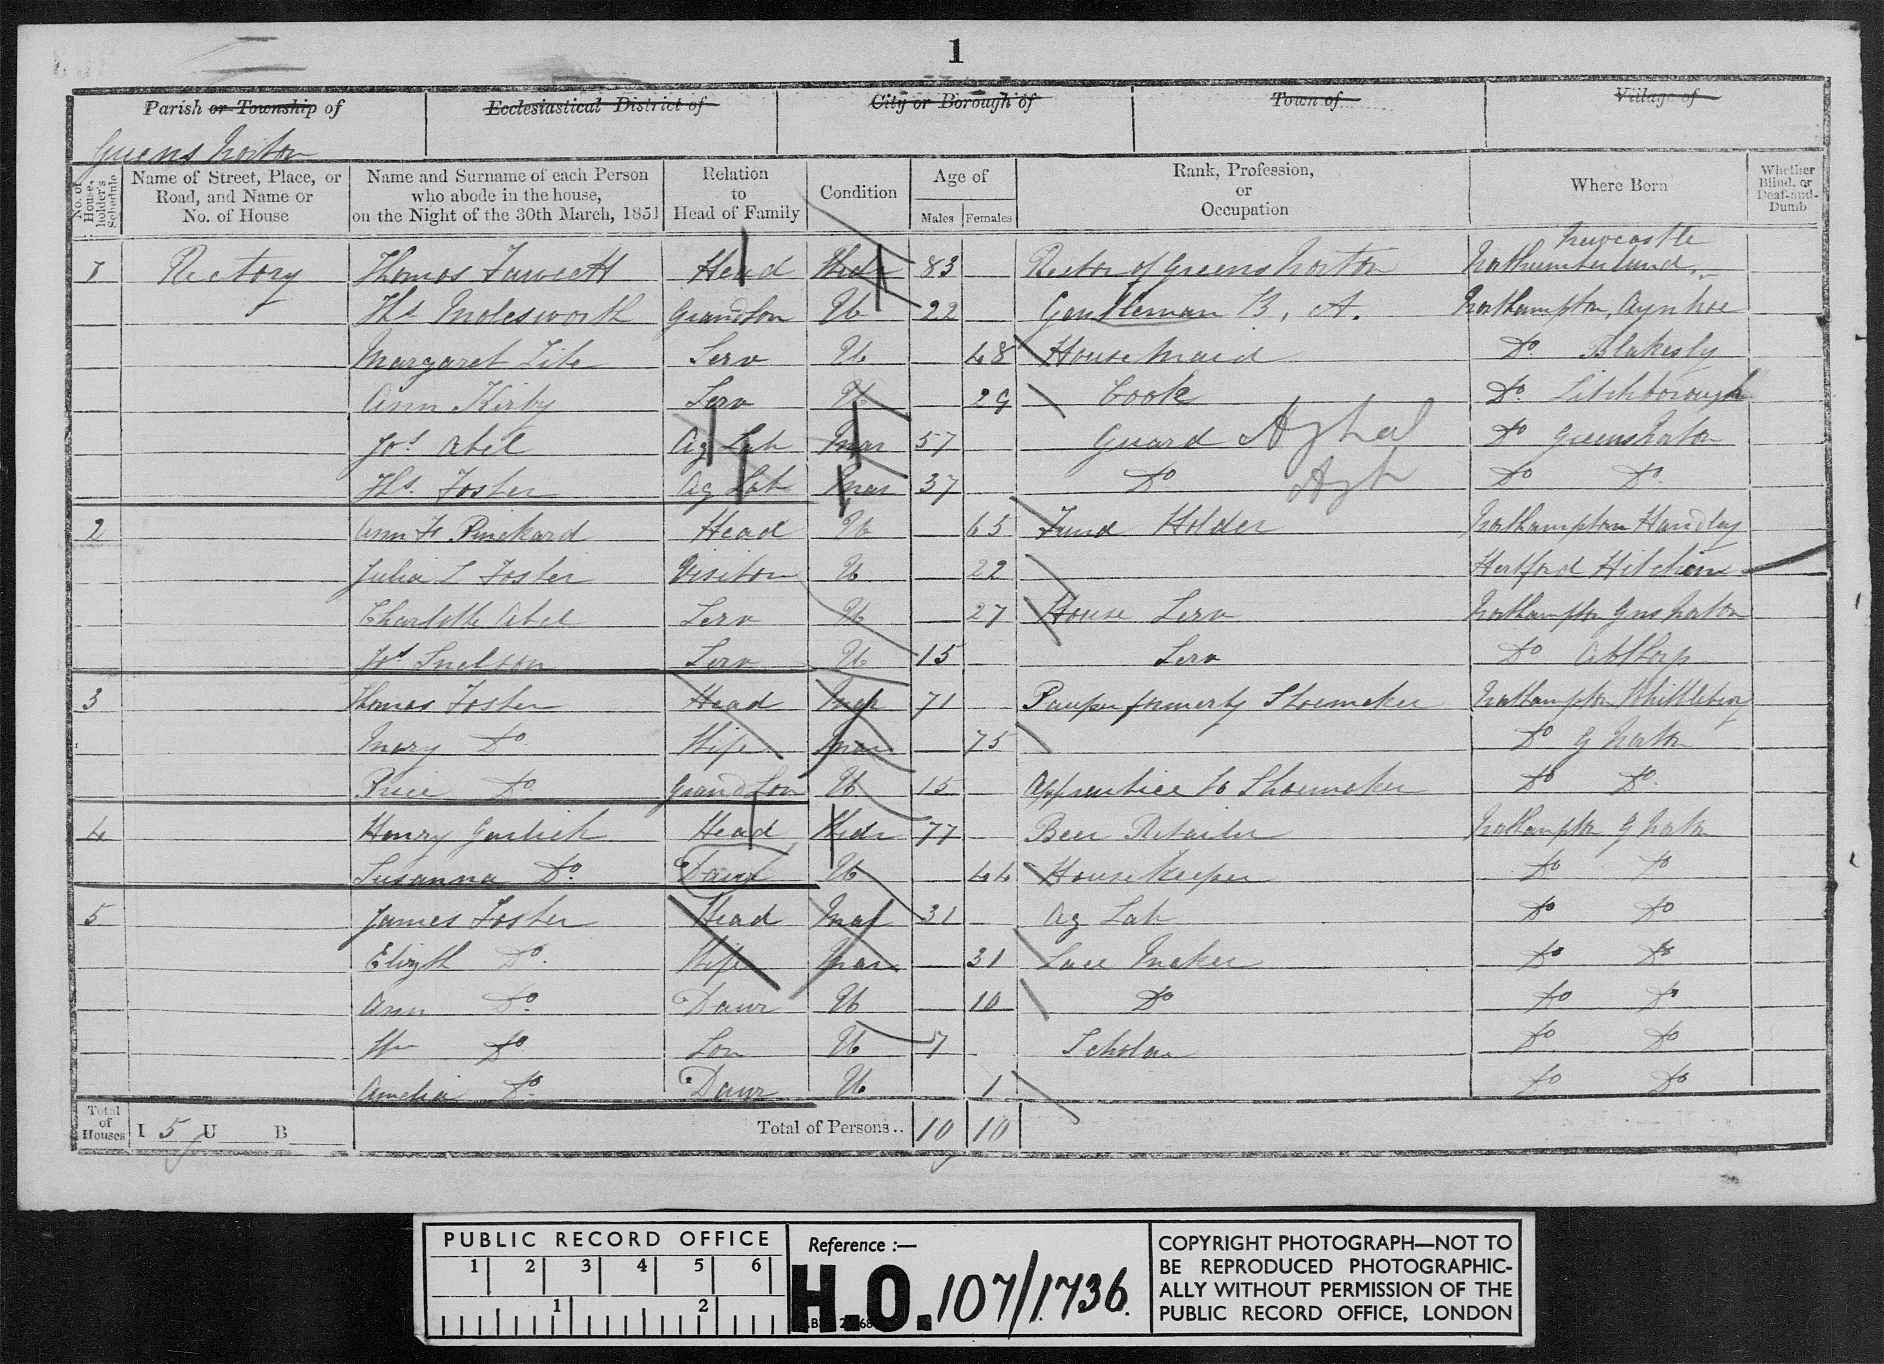 1
Parish or Township of Ecclesiastical District of City or Borough of Town of Village of
Greens Norton
No. of House-holder's Schedule Name of Street, Place, or Road, and Name or No. of House Name and Surname of each Person who abode in the house, on the Night of the 30th March, 1851 Relation to Head of Family Condition Age of Males Females Rank, Profession, or Occupation Where Born Whether Blind, or Deaf-and-Dumb
Newcastle
1 Rectory Thomas Fawcett Head Widr 83 Rector of Greens Norton Northumberland
Ths Molesworth Grandson U 22 Gentleman B. A. Northampton, Aynhoe
Margaret U 48 House Maid Do Blakesly
Ann Kirby Serv U 29 Cook Do Litchborough
Jos Abel Ag Lab Mar 57 Guard Do Greens Norton
Ths. Foster Ag Lab Mar 37 Do Do Do
2 Ann Pinckard Head U 65 Fund Holder Northampton Handley
Julia L Foster Visitor U 22 Hertford Hitchin
Charlotte Abel Serv U 27 House Serv Northampton Gns Norton
Snelson Serv U 15 Serv Do Abthorp
3 Thomas Foster Head Mar 71 Pauper formerly Shoemaker Northampton Whittlebury
Mary Do Wife Mar 75 Do G Norton
Do Grandson U 15 Apprentice to Shoemaker Do Do
4 Henry Garlick Head Widr 77 Beer Retailer Northampton G Norton
Susanna Do Daur U 44 Housekeeper Do Do
5 James Foster Head Mar 31 Ag Lab Do Do
Elizth Do Wife Mar 31 Lace Maker Do Do
Ann Do Daur U 10 Do Do Do
Wm Do Son U 7 Scholar Do Do
Amelia Do Daur U 1 Do Do
Total of Houses I 5 U B Total of Persons.. 10 10
PUBLIC RECORD OFFICE
1 2 3 4 5 6
1 2
Reference :—
H.O. 107/1736.
COPYRIGHT PHOTOGRAPH—NOT TO
BE REPRODUCED PHOTOGRAPHIC-
ALLY WITHOUT PERMISSION OF THE
PUBLIC RECORD OFFICE, LONDON